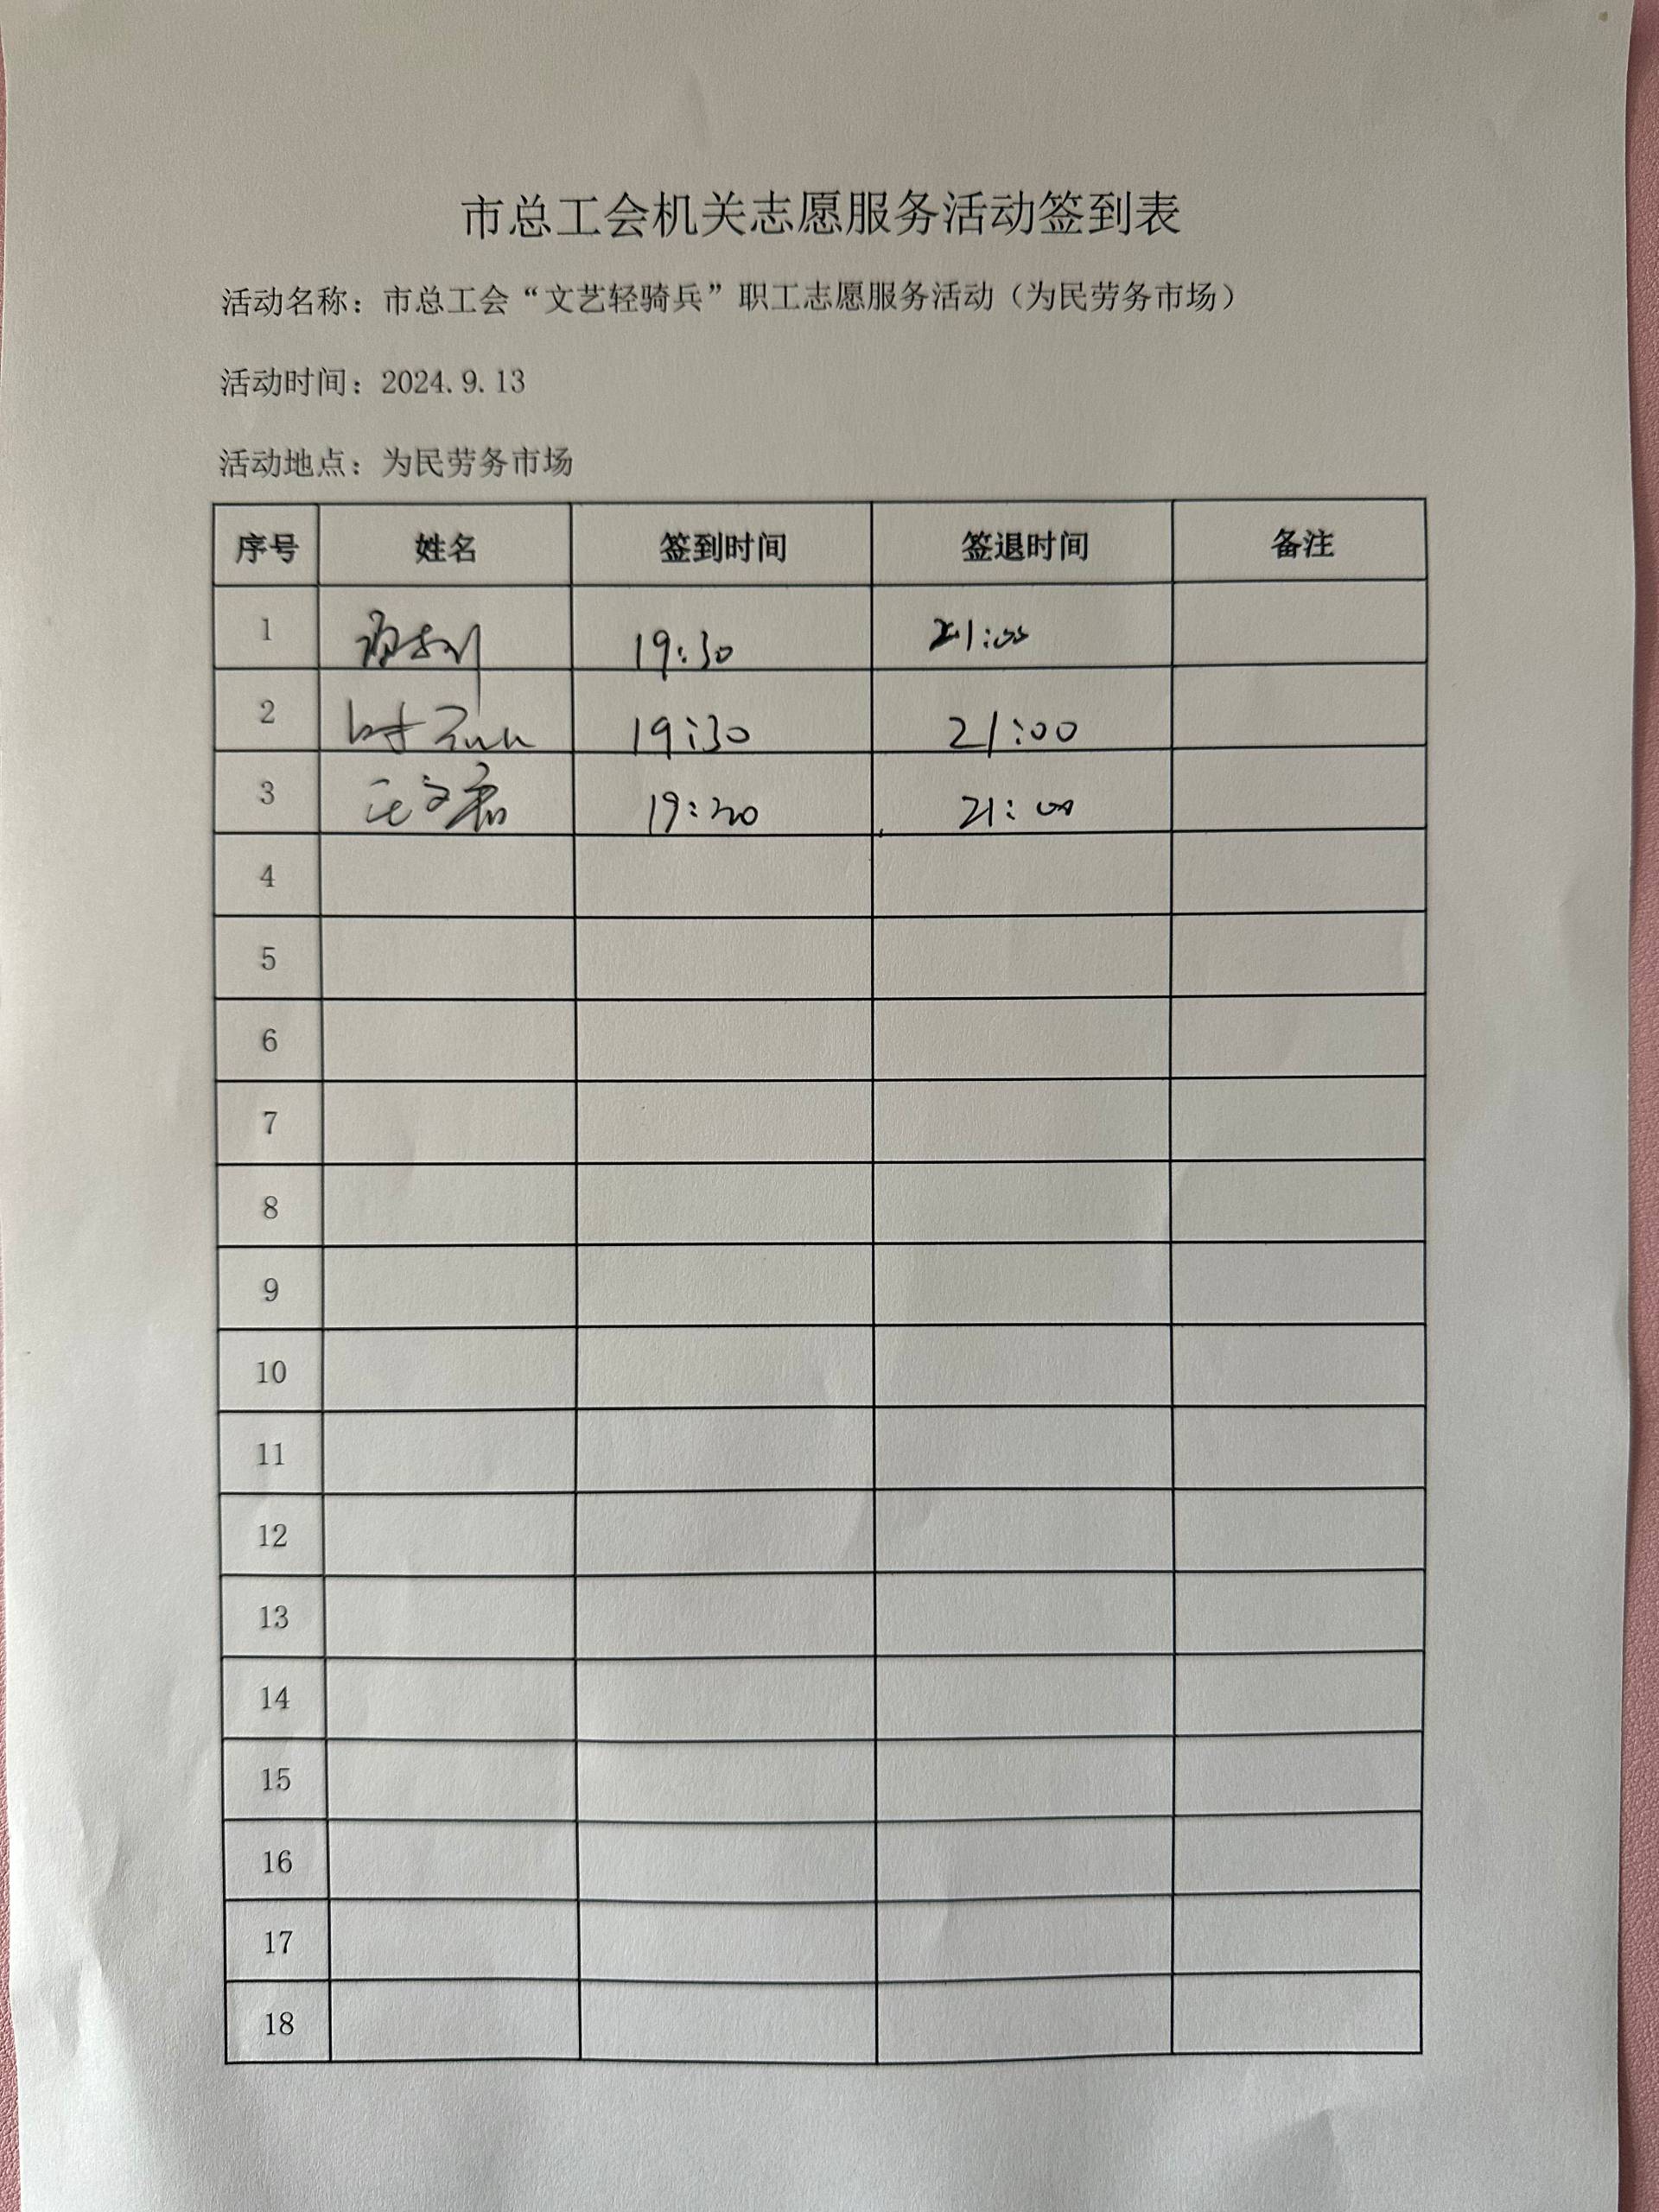 市总工会机关志愿服务活动签到表
活动名称：市总工会“文艺轻骑兵”职工志愿服务活动（为民劳务市场）
活动时间：2024.9.13
活动地点：为民劳务市场
序号 姓名 签到时间 签退时间 备注
1 19:30 21:00
2 19:30 21:00
3 19:20 21:00
4
5
6
7
8
9
10
11
12
13
14
15
16
17
18